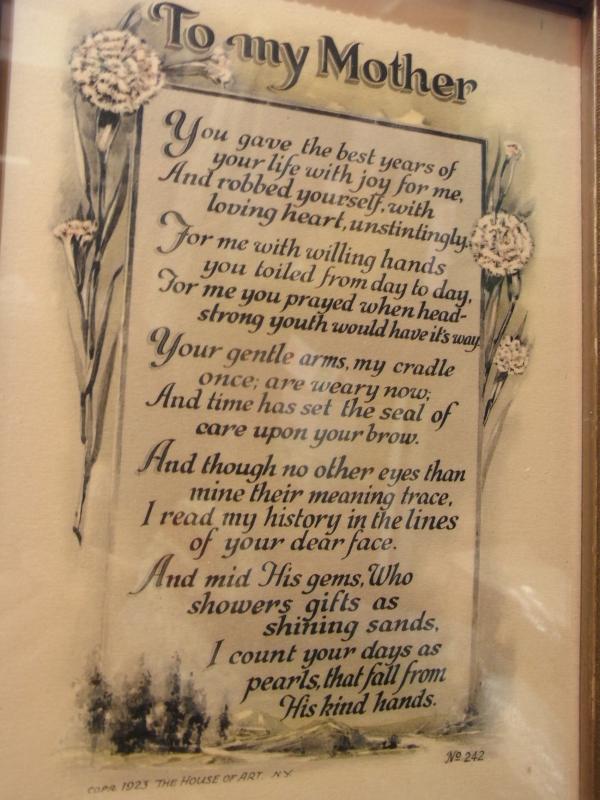 To my Mother
You gave the best years of
your life with joy for me,
And robbed yourself, with
loving heart, unstintingly.
For me with willing hands
you toiled from day to day,
For me you prayed when head-
strong youth would have it's way.
Your gentle arms, my cradle
once; are weary now;
And time has set the seal of
care upon your brow.
And though no other eyes than
mine their meaning trace,
I read my history in the lines
of your dear face.
And mid His gems, Who
showers gifts as
shining sands,
I count your days as
pearls, that fall from
His kind hands.
No. 242
COPR. 1923 THE HOUSE OF ART N.Y.